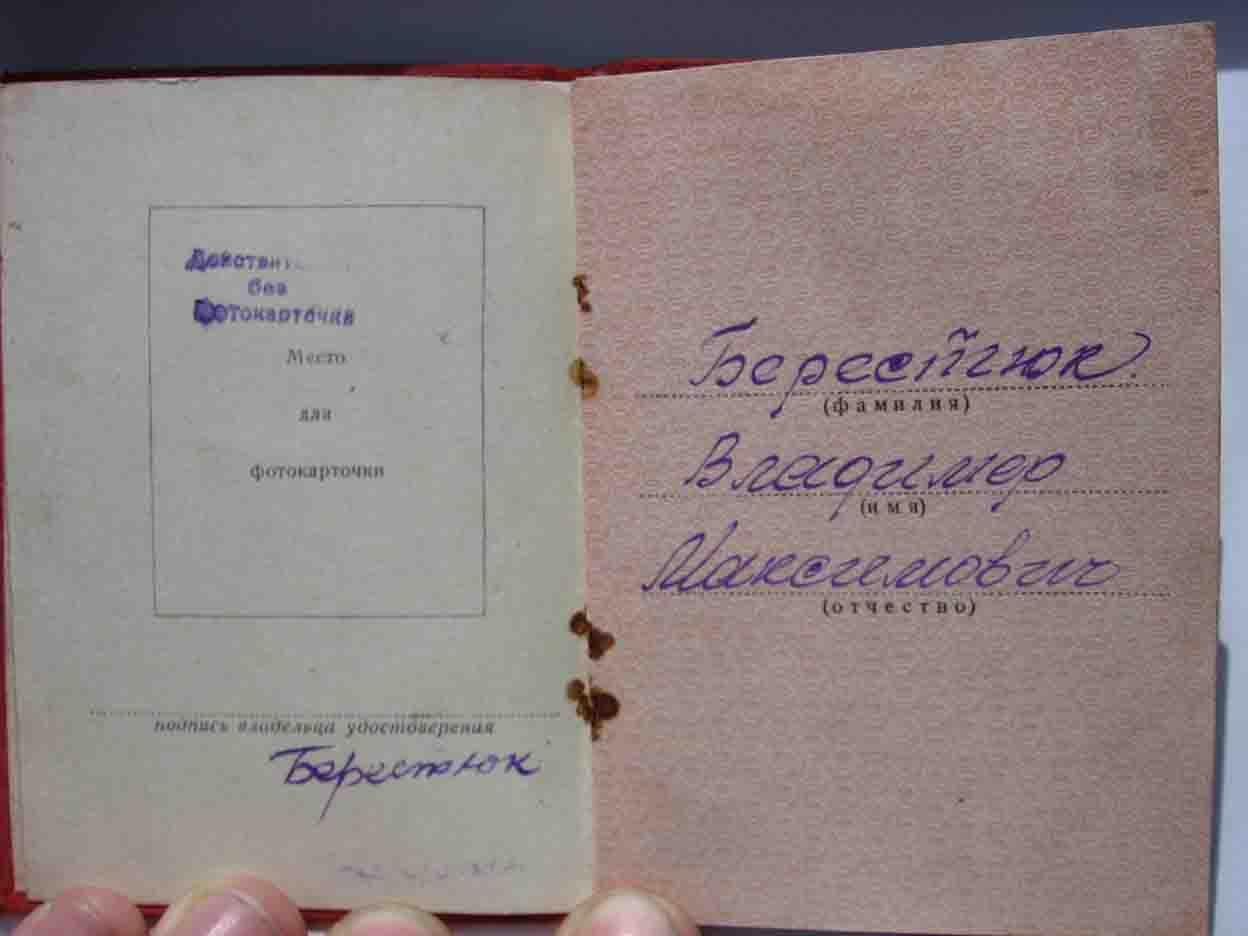 без
фотокарточки
Место
для
фотокарточки
подпись владельца удостоверения
Берестюк
Берестюк
(фамилия)
Владимир
(имя)
Максимович
(отчество)